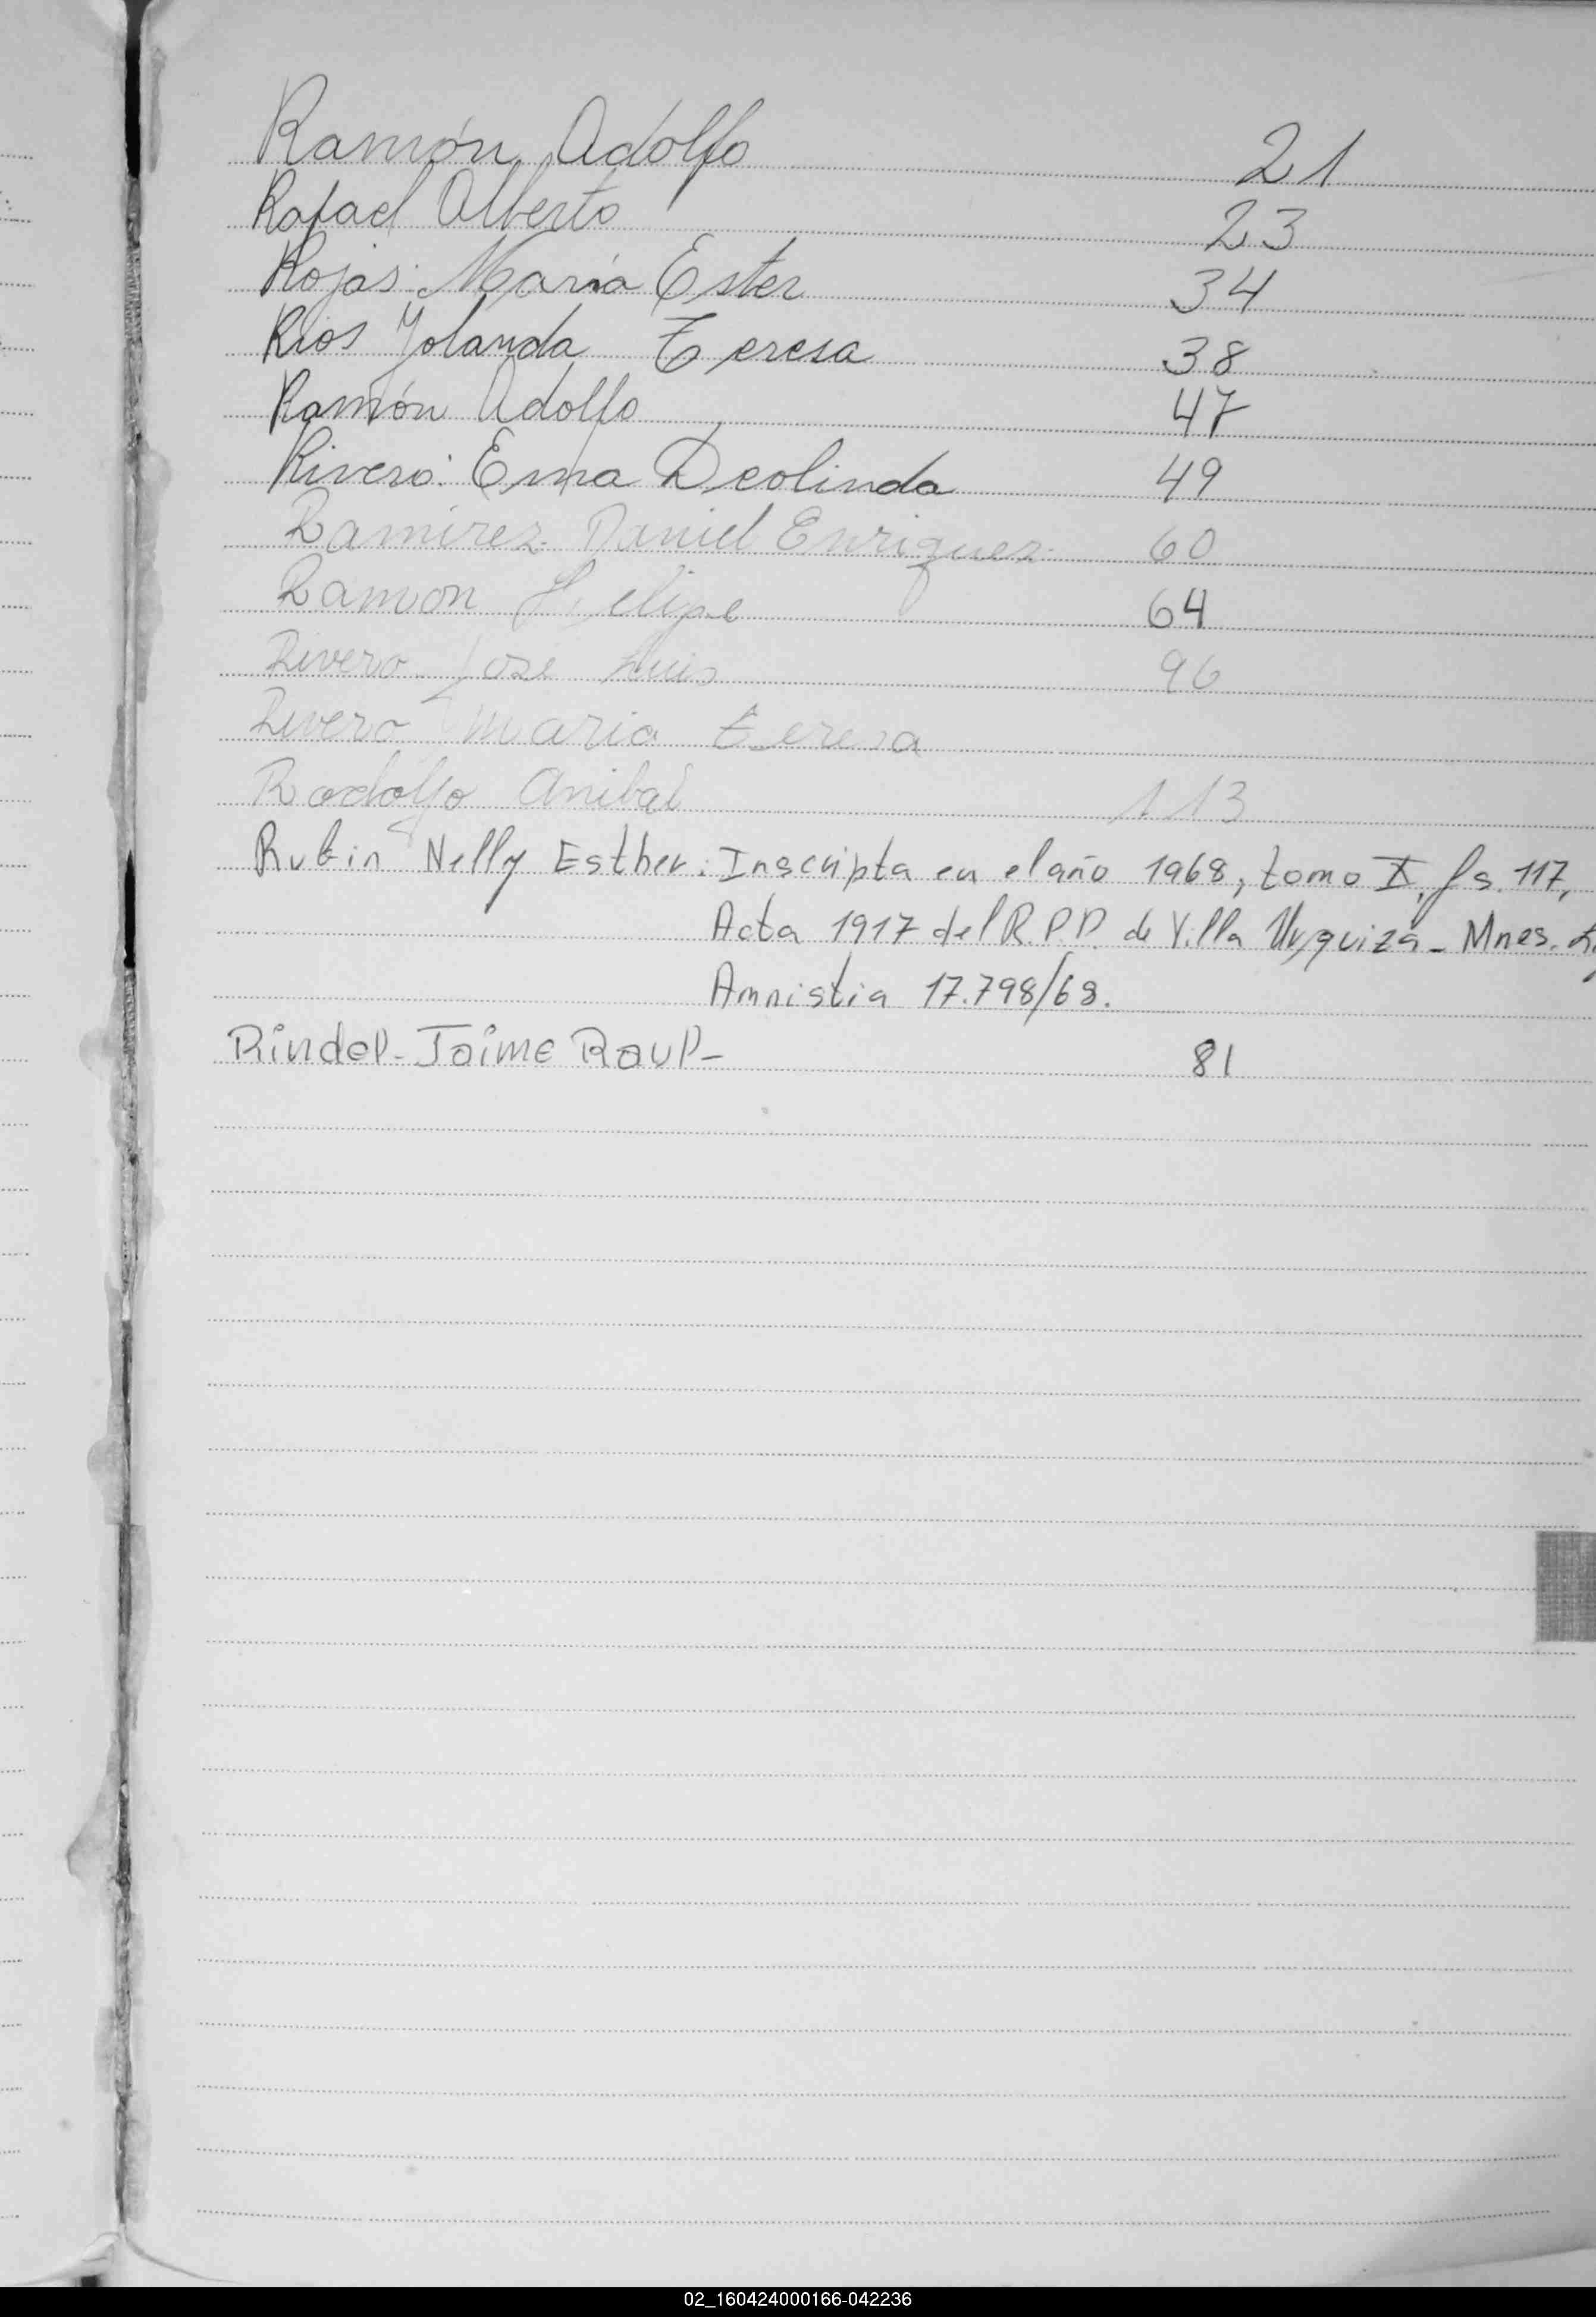 Ramón Adolfo 21
Rafael Alberto 23
Rojas: María Ester 34
Rios Yolanda Teresa 38
Ramón Adolfo 47
Rivero: Ema Deolinda 49
Ramirez Daniel Enriquez 60
Ramon Felipe 64
Rivero Jose Luis 96
Rivero Maria teresa
Rodolfo Anibal 113
Rubin Nelly Esther: Inscripta en el año 1968, tomo X, fs. 117,
Acta 1917 del R.P.P. de Villa Urquiza - Mnes.
Amnistia 17.798/68.
Rindel - Jaime Raul - 81
02_160424000166-042236